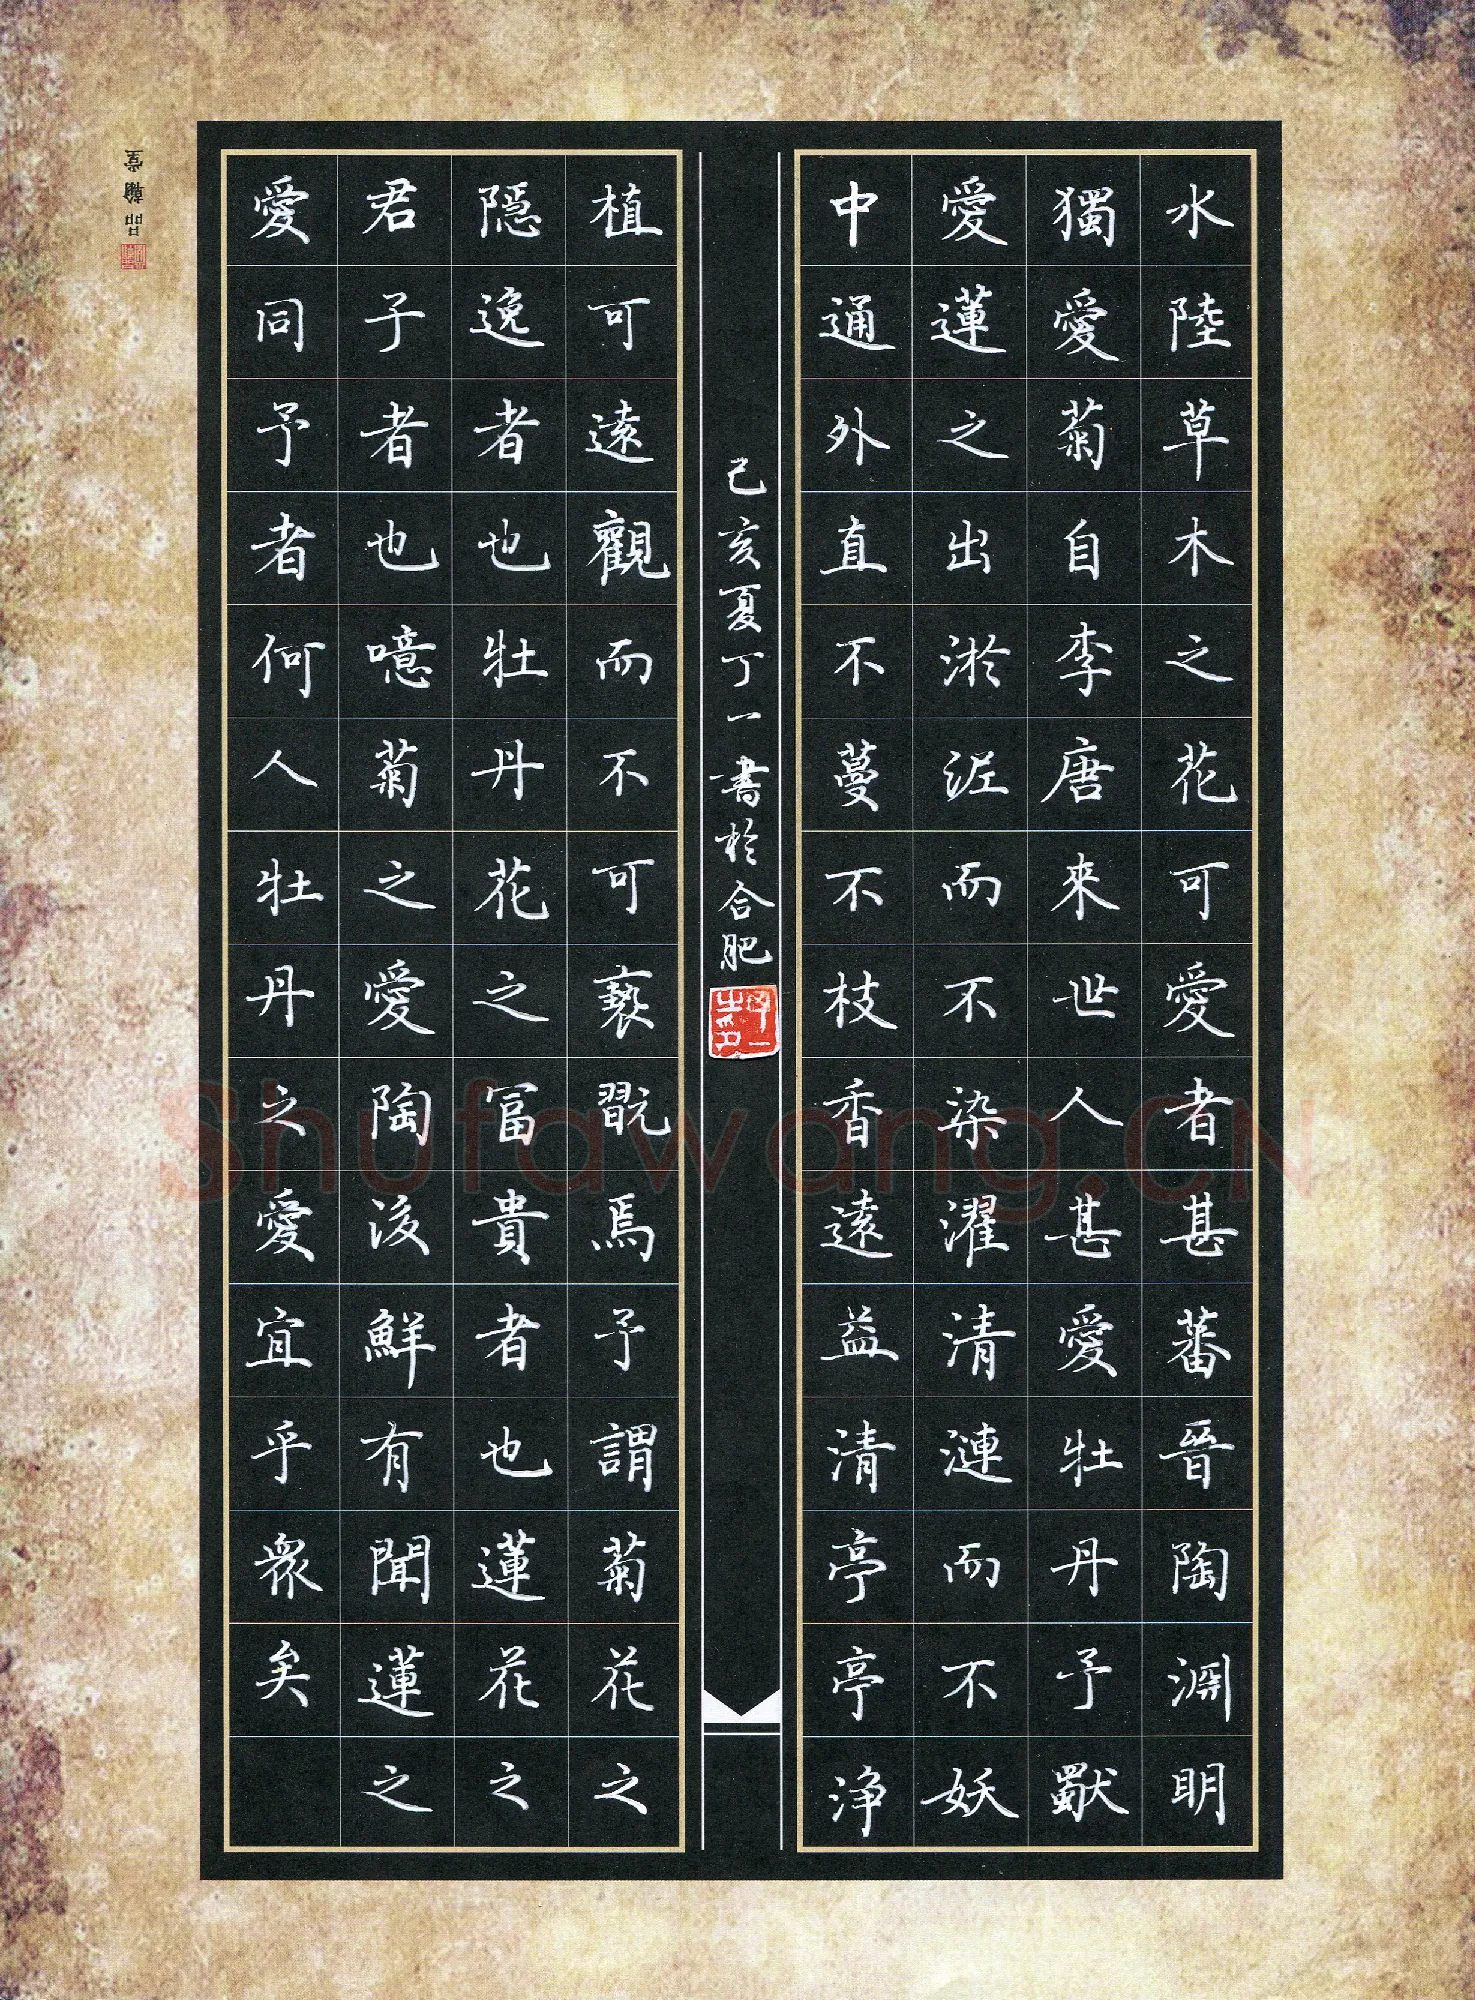 水陸草木之花可愛者甚蕃晉陶淵明
獨愛菊自李唐來世人甚愛牡丹予獨
愛蓮之出淤泥而不染濯清漣而不妖
中通外直不蔓不枝香遠益清亭亭浄
己亥夏丁一書於合肥
丁一之印
植可遠觀而不可褻翫焉予謂菊花之
隱逸者也牡丹花之冨貴者也蓮花之
君子者也噫菊之愛陶後鮮有聞蓮之
愛同予者何人牡丹之愛宜乎衆矣
品翰堂
Shufawang.CN